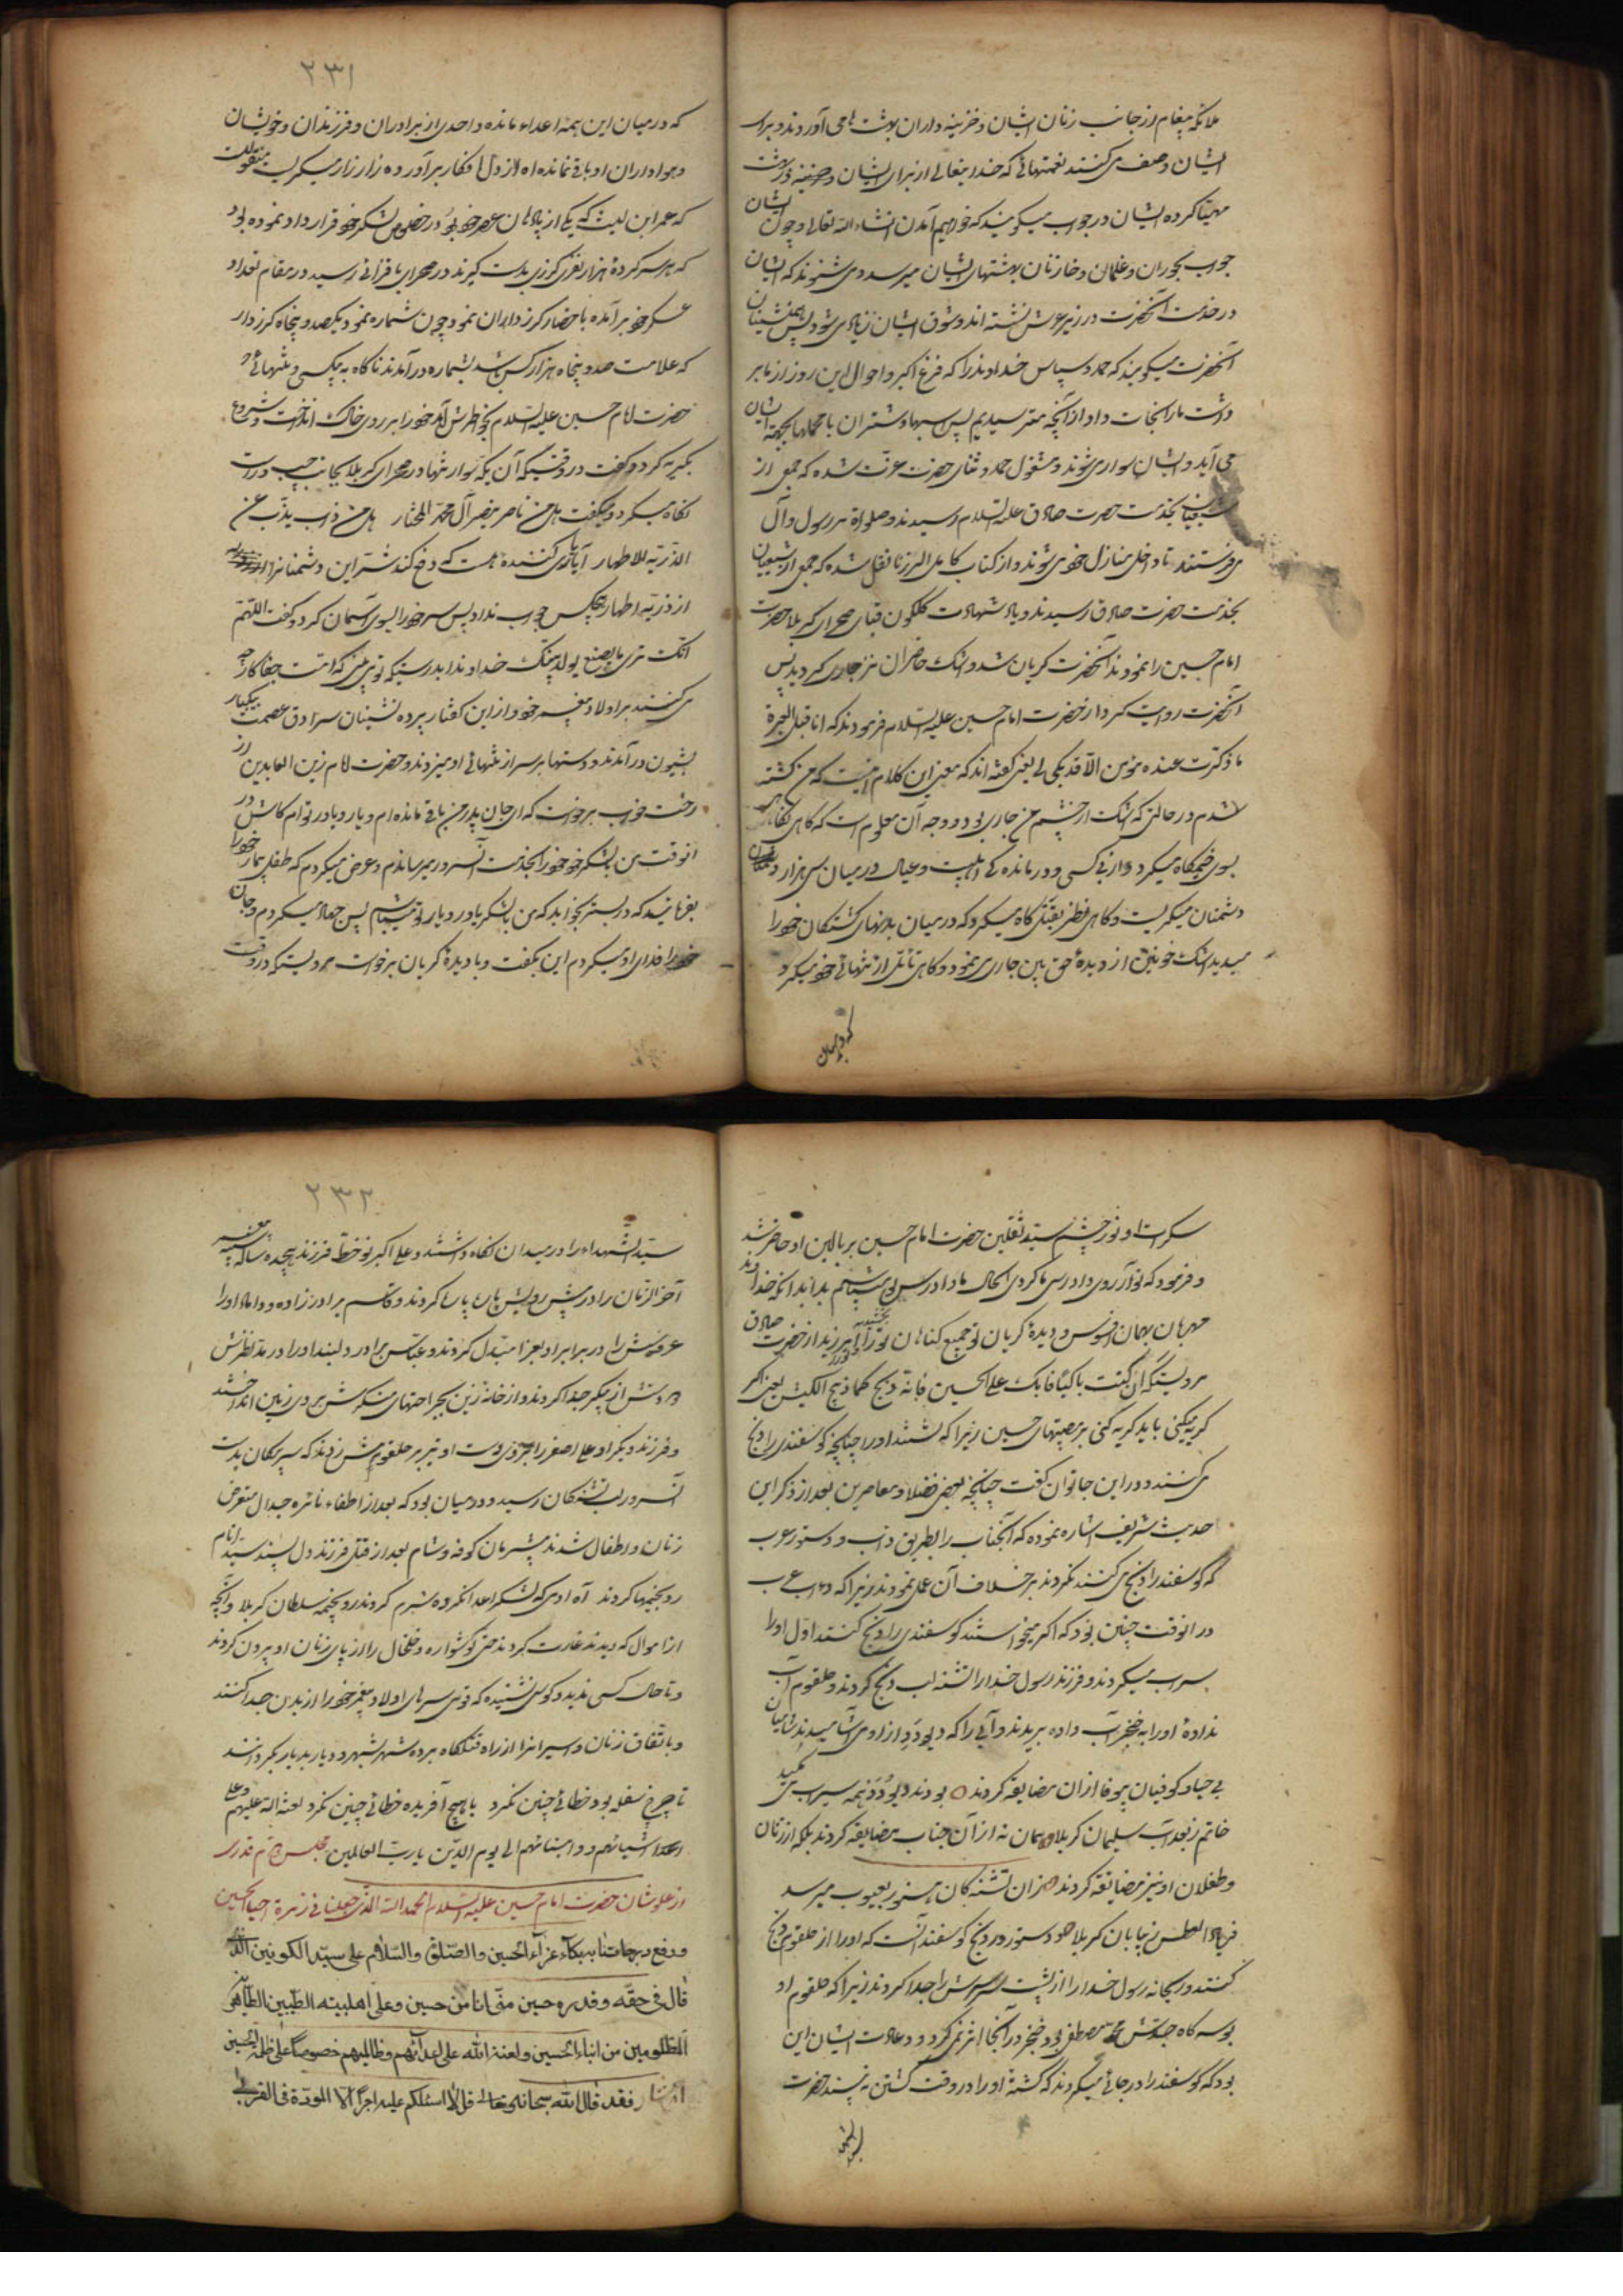 ملائکه پیغام از جانب زنان ایشان و خزینه داران بهشت می آورند و برای
ایشان وصف می کنند نعمتهائی که خدایتعالی از برای ایشان در بهشت
مهیا کرده ایشان در جواب میگویند که خواهیم آمدن انشاء الله تعالی و چون ایشان
جواب بحوران و غلمان و خازنان بهشتهای ایشان میرسد و می شنوند که ایشان
در خدمت آنحضرت در زیر عرش نشسته اند و شوق ایشان زیاد می شود پس همنشینان
آنحضرت میگویند که حمد و سپاس خداوند را که فزع اکبر و احوال این روز را از ما بر
داشت ما را نجات داد از آنچه میترسیدیم پس اسبها و شتران با محملها بجهة ایشان
می آید و ایشان سوار می شوند و مشغول حمد و ثنای حضرت عزت شده که جمعی از
شیعیان بخدمت حضرت صادق علیه السلام رسیدند و صلواة بر رسول و آل
می فرستند تا داخل منازل خود می شوند و از کتاب کامل الزیارة نقل شده که جمعی از شیعیان
بخدمت حضرت صادق رسیدند و یاد شهادت گلگون قبای صحرای کربلا حضرت
امام حسین را نمودند آنحضرت گریان شد و اشک حاضران نیز جاری گردید پس
آنحضرت روایت کرد از حضرت امام حسین علیه السلام فرمودند که انا قتیل العبرة
ما ذکرت عنده مؤمن الا قد بکی لی یعنی گفته اند که معنی این کلام اینست که من کشته
شدم در حالتی که اشک از چشم من جاری بود و وجه آن معلوم است که گاهی نگاهی
بسوی خیمگاه میکرد و از بی کسی و درمانده گی اهلبیت و عیال در میان سی هزار
دشمنان میگریست و گاهی نظر بقتلگاه میکرد که در میان بدنهای کشتگان خود را
میدید اشک خونین از دیدهٔ حق بین جاری می نمود و گاهی تأمل از تنهائی خود میکرد
که در میان
۲۳۱
که در میان این همه اعداء مانده و احدی از برادران و فرزندان و خویشان
و هواداران او باقی نمانده آه از دل افکار بر آورده زار زار میگریست منقولست
که عمر ابن لیث که یکی از پادشاهان عصر خود بود در خصوص لشکر خود قرار داد نموده بود
که هر سرکردهٔ هزار نفری گرزی بدست گیرند در صحرای با فزائی رسید در مقام تعداد
عسکر خود بر آمده باحضار گرزداران نمود چون شماره نمود یکصد و پنجاه گرزدار
که علامت صد و پنجاه هزار کس باشد بشماره در آمدند ناگاه به بیکسی و تنهائی
حضرت امام حسین علیه السلام بخاطرش آمد خود را بر روی خاک انداخت و شروع
بگریه کرد و گفت در وقتیکه آن یکه سوار تنها در صحرای کربلا بجانب چپ و راست
نگاه میکرد و میگفت هل من ناصر ینصر آل محمد المختار هل من ذاب یذب عن
الذریة الاطهار آیا یاری کننده هست که دفع کند شر این دشمنانرا
از ذریهٔ اطهار هیچکس جواب نداد پس سر خود را بسوی آسمان کرد و گفت اللهم
انک تری ما یصنع بولد نبیک خداوندا بدرستیکه تو می بینی که امت جفاکار چه
می کنند بر اولاد پیغمبر خود از این گفتار پرده نشینان سرادق عصمت بیکبار
بشیون در آمدند و دستها بر سر از تنهائی او میزدند و حضرت امام زین العابدین از
رخت خواب برخواست که ای جان پدر من باقی مانده ام و یار و یاور توام کاش در
آنوقت من با لشکر خود خود را بخدمت آنسرور میرساندم و عرض میکردم که طفل بیمار خود را
بفرمائید که در بستر بخوابد که من با لشکر یاور و یار تو میباشم پس جهاد میکردم و جان
خود را فدای او میکردم این بگفت و با دیدهٔ گریان برخواست مرویست که در وقت
سکرات او نور چشم سید ثقلین حضرت امام حسین بر بالین او حاضر شد
و فرمود که تو آرزوی دادرسی ما کردی الحال ما دادرس تو میباشیم بدانکه خداوند
مهربان بهمان افسوس و دیدهٔ گریان تو جمیع گناهان ترا آمرزید از حضرت صادق
مرویست که ان کنت باکیا فابک علی الحسین فانه ذبح کما ذبح الکبش یعنی اگر
گریه میکنی باید گریه کنی بر مصیبتهای حسین زیرا که کشتند او را چنانچه گوسفند را ذبح
می کنند و در این جا توان گفت چنانچه بعضی فضلاء معاصرین بعد از ذکر این
حدیث شریف اشاره نموده که آنجناب را بطریق داب و دستور عرب
که گوسفند را ذبح می کنند نکردند بر خلاف آن عمل نمودند زیرا که داب عرب
در آنوقت چنین بود که اگر میخواستند گوسفندی را ذبح کنند اول او را
سیراب میکردند و فرزند رسول خدا را تشنه لب ذبح کردند و حلقوم آب
نداده او را به خنجر آب داده بریدند و آبی را که دیو و دد از او می آشامیدند شامیان
بی حیا و کوفیان بیوفا از آن مضایقه کردند ○ بودند دیو و دد همه سیراب می مکید
خاتم ز قحط آب سلیمان کربلا ○ همان نه از آن جناب مضایقه کردند بلکه از زنان
و طفلان او نیز مضایقه کردند ○ زان تشنگان هنوز بعیوق میرسد
فریاد العطش ز بیابان کربلا ○ دستور در ذبح گوسفند آنست که او را از حلقوم ذبح
کنند و ریحانه رسول خدا را از پشت سر سرش را جدا کردند زیرا که حلقوم او
بوسه گاه جدش محمد مصطفی بود خنجر در آنجا اثر نمی کرد و عادت ایشان این
بود که گوسفند را در جائی میکردند که کشتهٔ او را در وقت کشتن نه بیند حضرت
۲۳۲
سید الشهداء را در میدان نگاه داشتند و علی اکبر نو خط فرزند هیجده ساله شبیه پیغمبر
آخر الزمان را در پیش رویش پاره پاره کردند و قاسم برادرزاده و داماد او را
عروسیش را در برابر او بعزا مبدل کردند و عباس برادر دلبند او را در مد نظرش
دو دستش از پیکر جدا کردند و از خانهٔ زین بجراحتهای منکرش بر روی زمین انداختند
و فرزند دیگر او علی اصغر را بر روی دست او تیر بر حلقومش زدند که سر پیکان بدست
آنسرور لب تشنگان رسید و در میان بود که بعد از اطفاء نائره جدال متعرض
زنان و اطفال شدند بیشرمان کوفه و شام بعد از قتل فرزند دل پسند سید انام
رو بخیمها کردند آه از دمی که لشکر اعدا نکرده شرم کردند رو بخیمه سلطان کربلا و آنچه
از اموال که دیدند غارت کردند حتی گوشواره و خلخال را از پای زنان او بیرون کردند
و تا حال کسی ندیده و گوش نشنیده که قومی سرهای اولاد پیغمبر خود را از بدن جدا کنند
و باتفاق زنان و اسیرانرا از راه قتلگاه برده شهر بشهر و دیار بدیار بگردانند
تا چرخ سفله بود خطائی چنین نکرد با هیچ آفریده خطائی چنین نکرد لعنة الله علیهم و علی
اعداشیائهم و ابنائهم الی یوم الدین یا رب العالمین مجلس
از علو شان حضرت امام حسین علیه السلام الحمد لله الذی جعلنا فی زمرة احباء الحسین
و رفع درجاتنا ببکاء عزاء الحسین و الصلوة و السلام علی سید الکونین الذی
قال فی حقه و قدره حسین منی و انا من حسین و علی اهلبیته الطیبین الطاهرین
المظلومین من ابناء الحسین و لعنة الله علی اعدائهم و ظالمیهم خصوصا علی ظلمة الحسین
فقد قال الله سبحانه و تعالی قل لا اسئلکم علیه اجرا الا المودة فی القربی